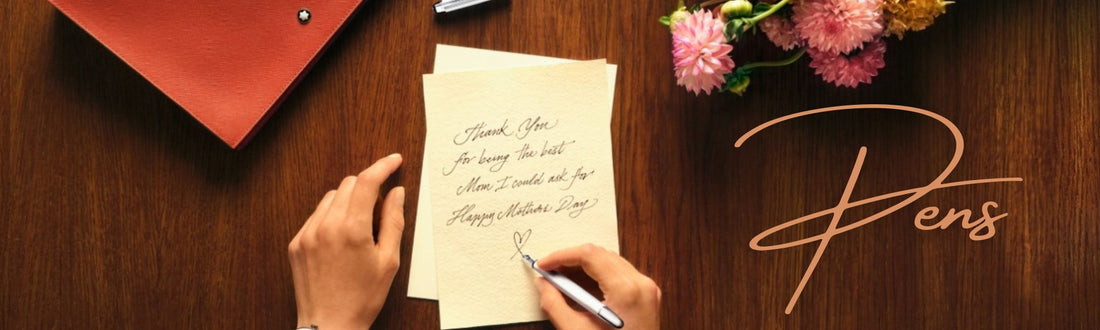 Thank You
for being the best
Mom I could ask for
Happy Mothers Day
Pens